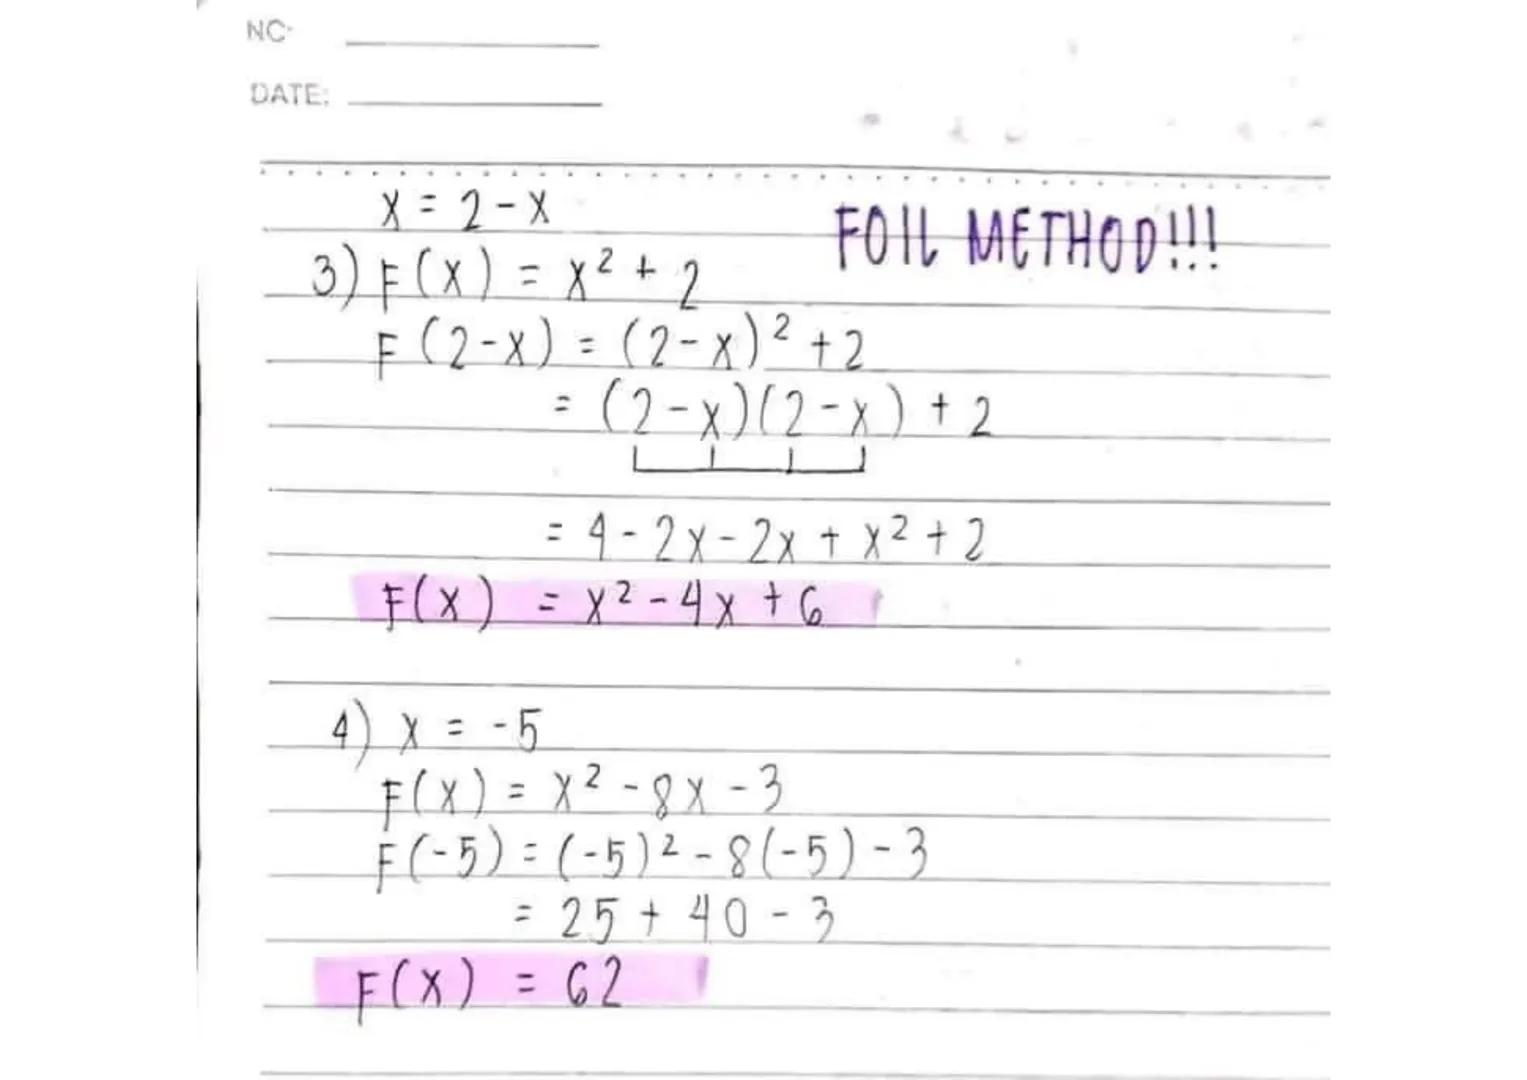 NC·
DATE:
x = 2 - x
FOIL METHOD!!!
3) F(x) = x² + 2
F(2-x) = (2-x)² + 2
= (2-x)(2-x) + 2
= 4 - 2x - 2x + x² + 2
F(x) = x² - 4x + 6
4) x = -5
F(x) = x² - 8x - 3
F(-5) = (-5)² - 8(-5) - 3
= 25 + 40 - 3
F(x) = 62